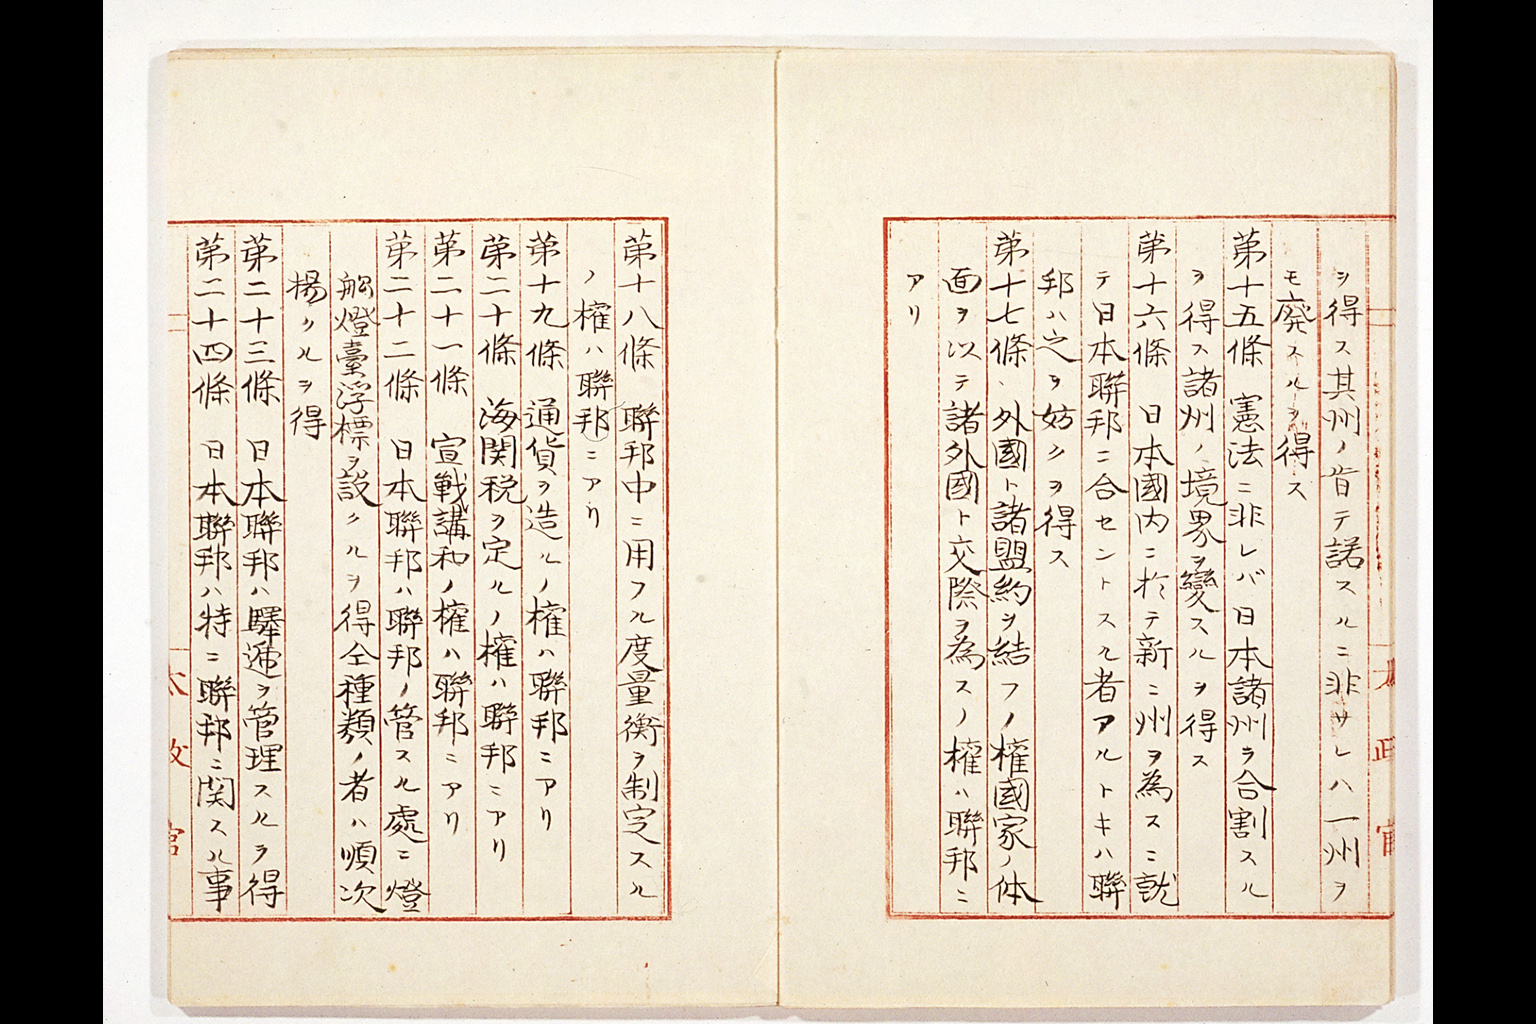 ヲ得ス其州ノ肯テ諾スルニ非サレハ一州ヲ
モ廃スルヲ得ス
第十五條　憲法ニ非レバ日本諸州ヲ合割スル
ヲ得ス諸州ノ境界ヲ變スルヲ得ス
第十六條　日本國内ニ於テ新ニ州ヲ為スニ就
テ日本聯邦ニ合セントスル者アルトキハ聯
邦ハ之ヲ妨クヲ得ス
第十七條　外國ト諸盟約ヲ結フノ権國家ノ体
面ヲ以テ諸外國ト交際ヲ為スノ権ハ聯邦ニ
アリ
第十八條　聯邦中ニ用フル度量衡ヲ制定スル
ノ権ハ聯邦ニアリ
第十九條　通貨ヲ造ルノ権ハ聯邦ニアリ
第二十條　海関税ヲ定ルノ権ハ聯邦ニアリ
第二十一條　宣戦講和ノ権ハ聯邦ニアリ
第二十二條　日本聯邦ハ聯邦ノ管スル處ニ燈
船燈臺浮標ヲ設クルヲ得仝種類ノ者ハ順次
揚クルヲ得
第二十三條　日本聯邦ハ驛逓ヲ管理スルヲ得
第二十四條　日本聯邦ハ特ニ聯邦ニ関スル事
太政官